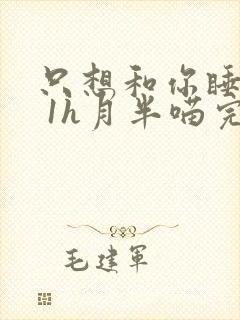 只想和你睡
1h月半喵完
毛建军